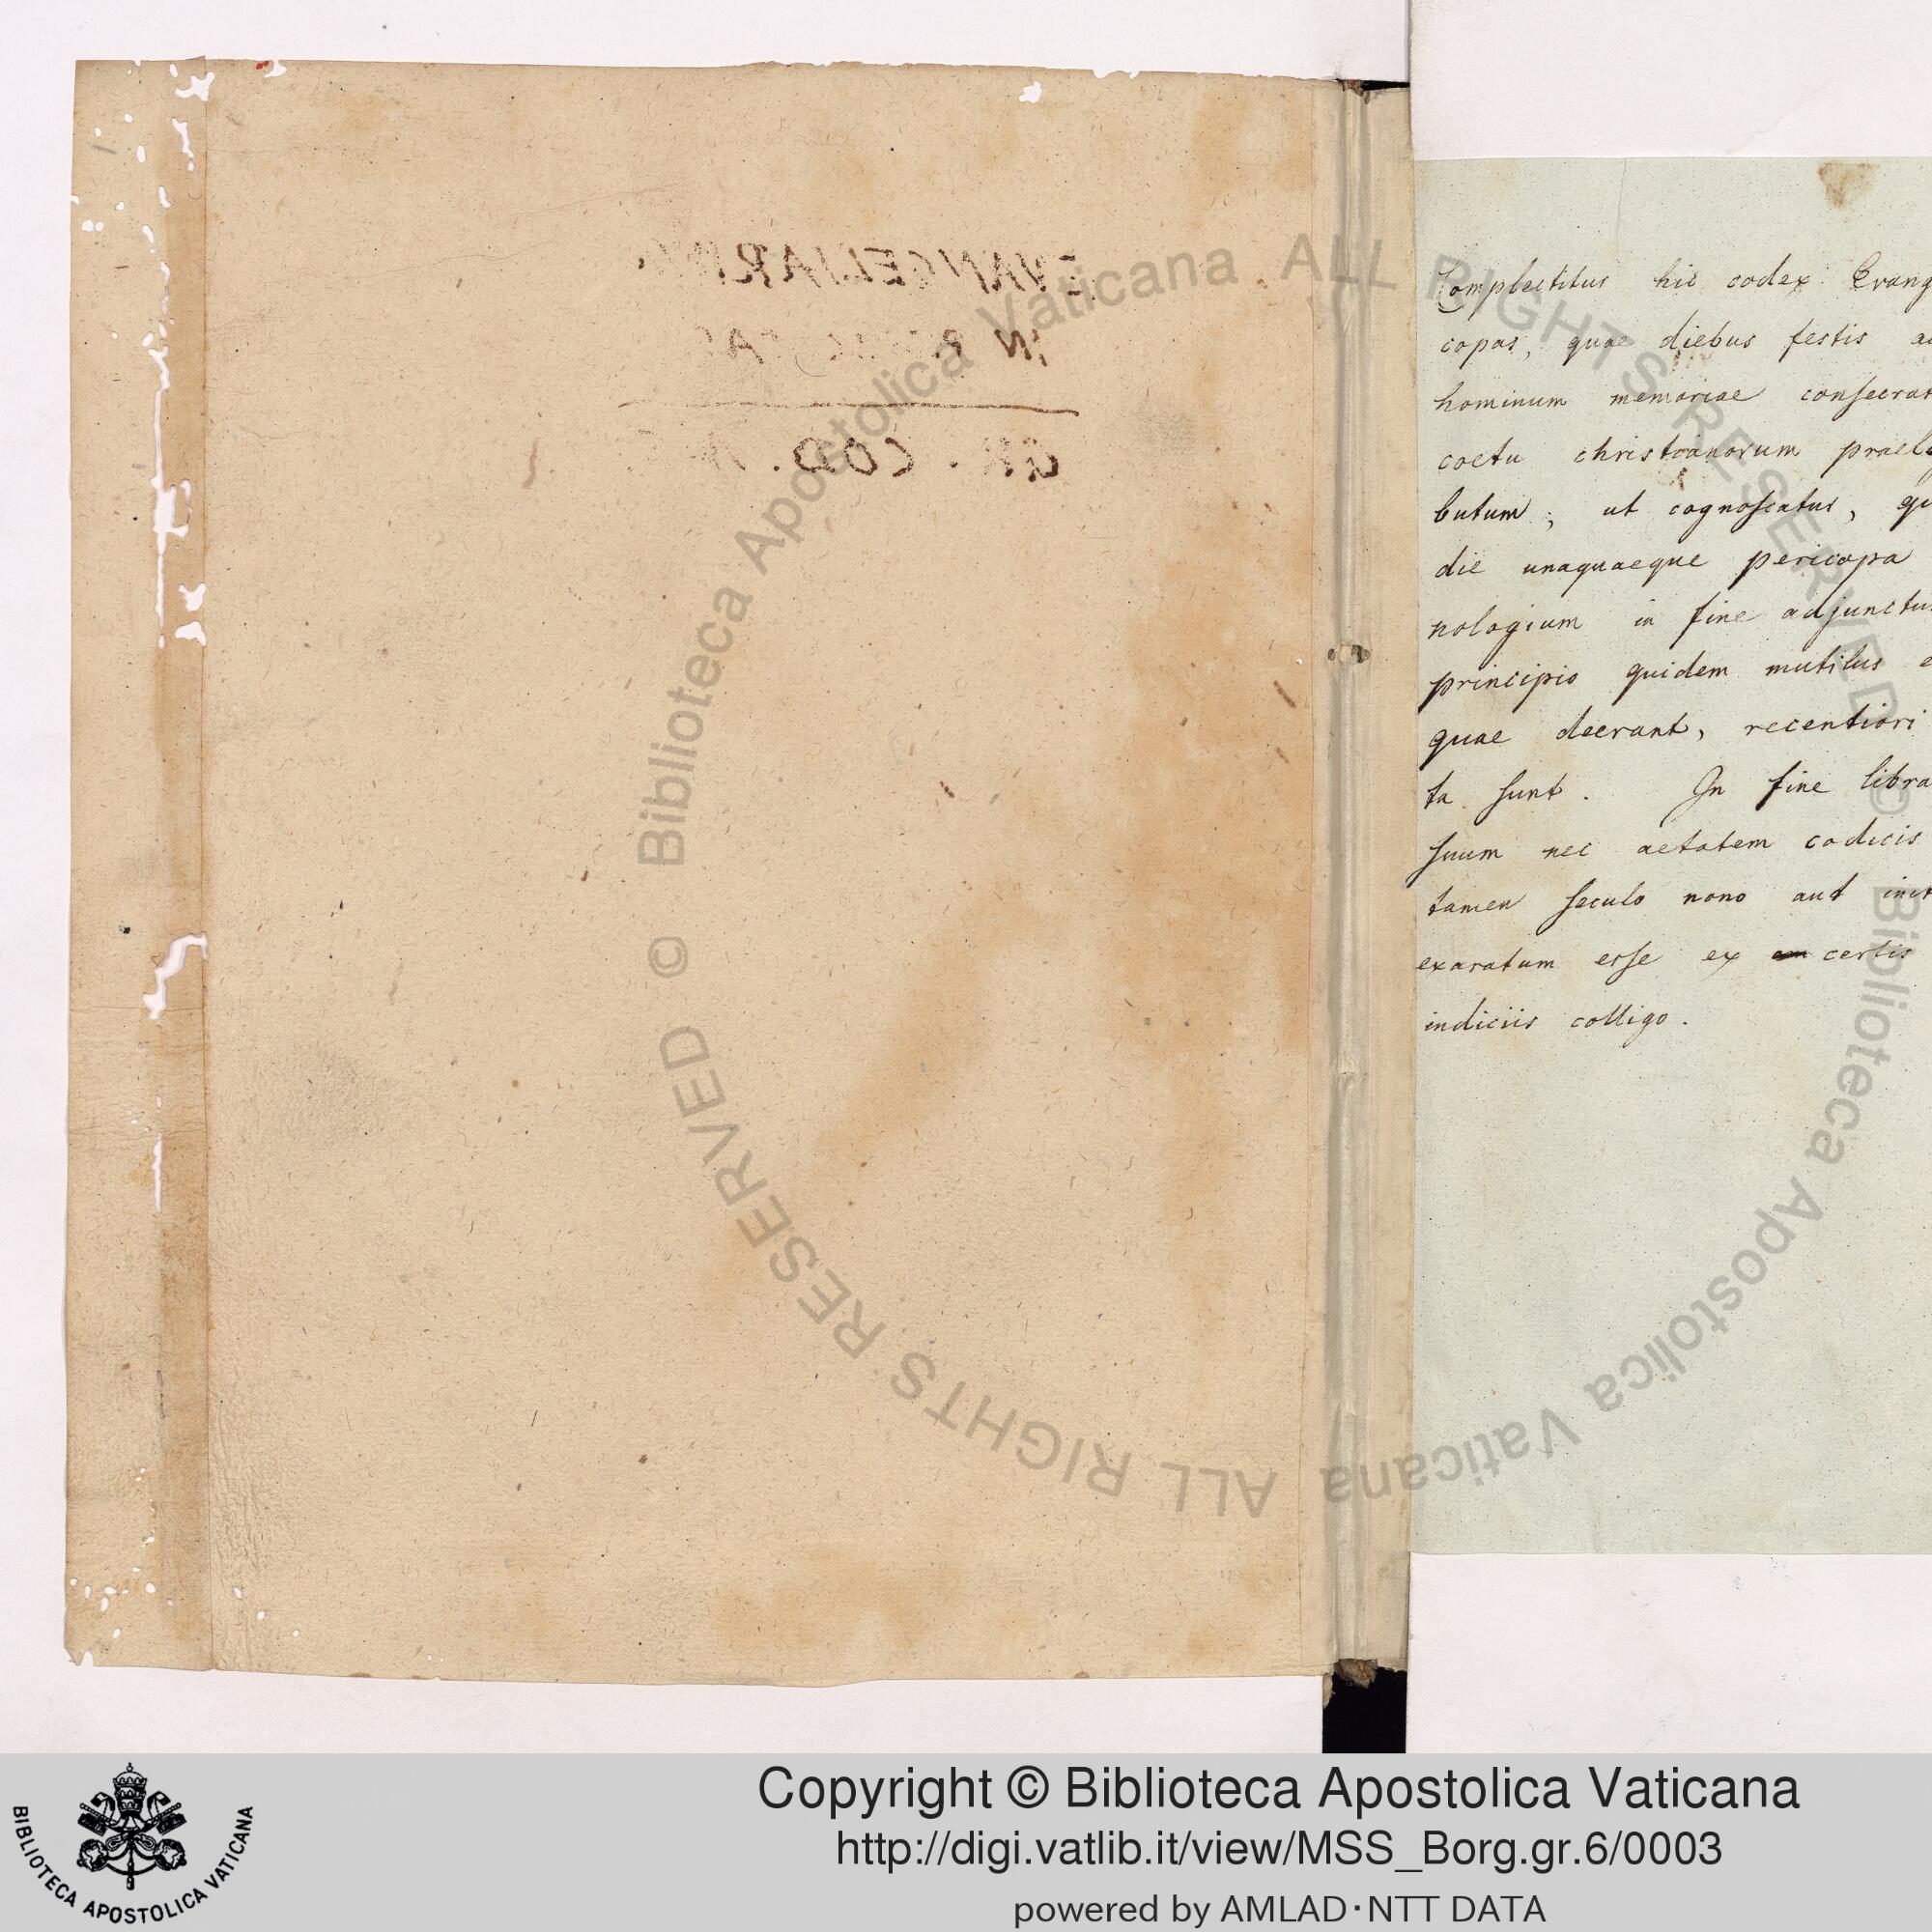 EVANGELIARIUM
IN
GR. COD.
Complectitur hic codex Evang
copas, quae diebus festis
hominum memoriae consecrat
coetu christianorum praele
butum; ut cognoscatur, qu
die unaquaeque pericopa
nologium in fine adjunctu
principio quidem mutilus e
quae deerant, recentiori
ta sunt. In fine libra
suum nec aetatem codicis
tamen seculo nono aut init
exaratum esse ex certis
indiciis colligo.
Biblioteca Apostolica Vaticana ALL RIGHTS RESERVED © Biblioteca Apostolica Vaticana ALL RIGHTS RESERVED ©
BIBLIOTECA APOSTOLICA VATICANA
Copyright © Biblioteca Apostolica Vaticana
http://digi.vatlib.it/view/MSS_Borg.gr.6/0003
powered by AMLAD·NTT DATA